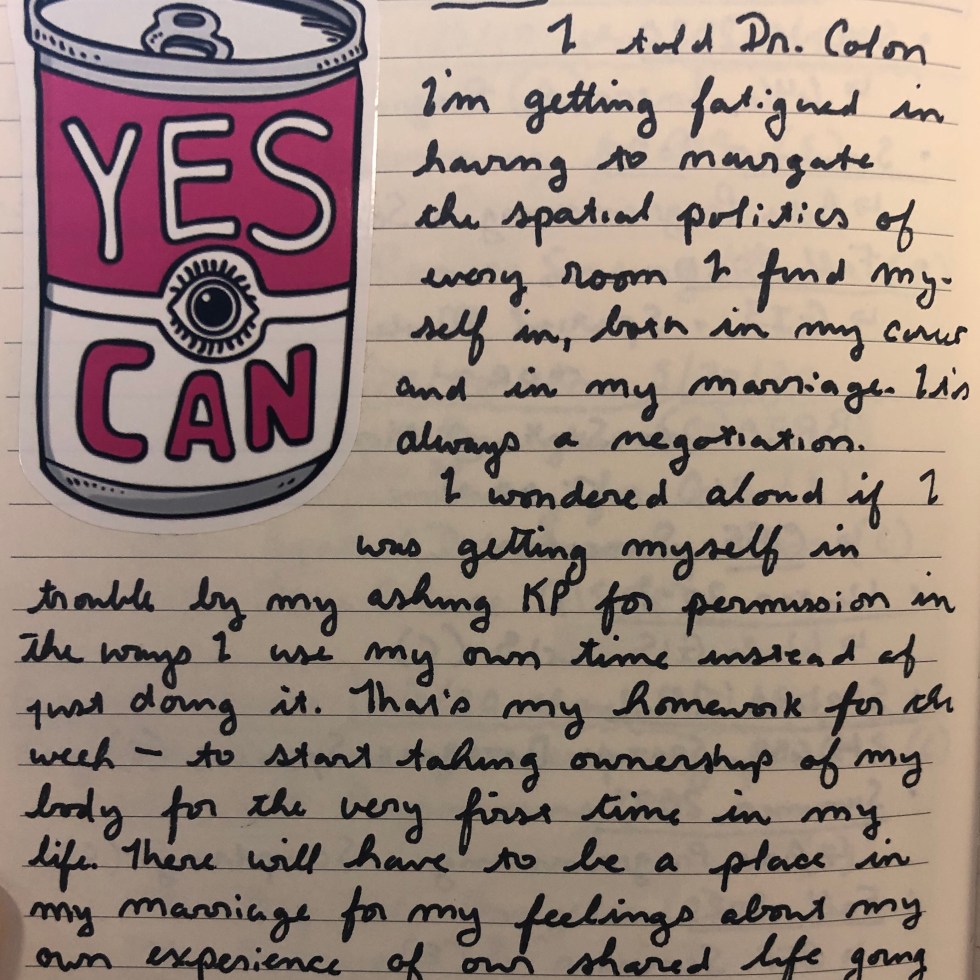 YES
CAN
I told Dr. Colon
I'm getting fatigued in
having to navigate
the spatial politics of
every room I find my-
self in, both in my career
and in my marriage. It's
always a negotiation.
I wondered aloud if I
was getting myself in
trouble by my asking KP for permission in
the ways I use my own time instead of
just doing it. That's my homework for the
week — to start taking ownership of my
body for the very first time in my
life. There will have to be a place in
my marriage for my feelings about my
own experience of our shared life going